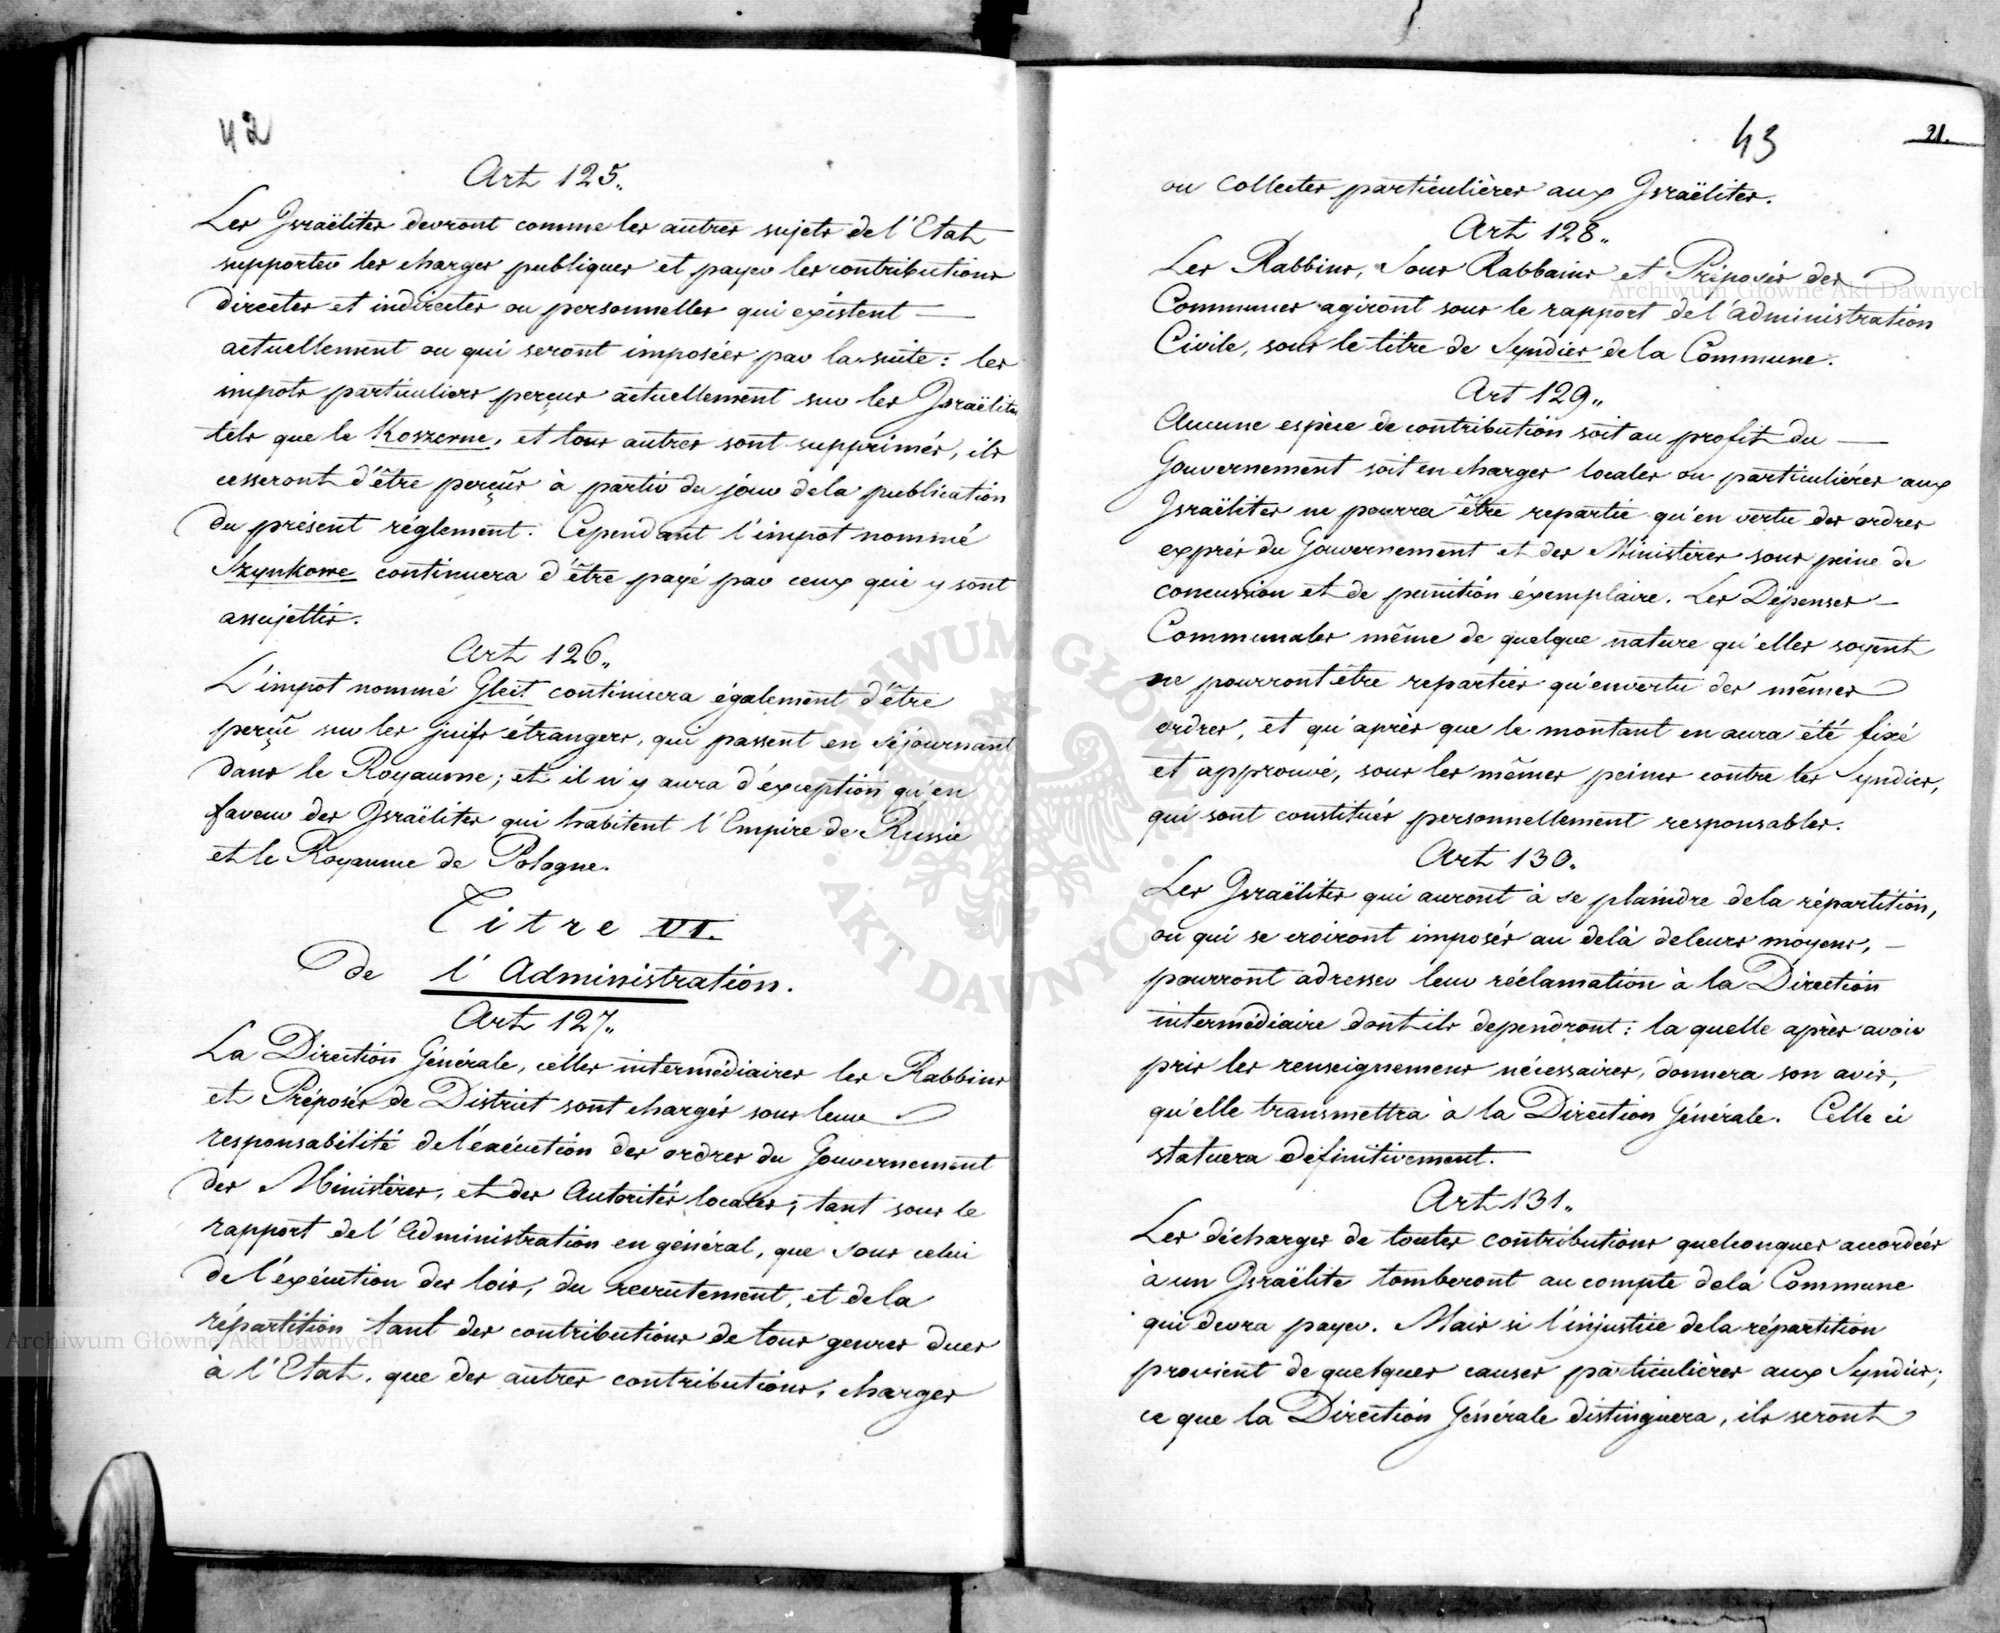 42
Art 125.
Les Israëlites devront comme les autres sujets de l'Etat
supporter les charges publiques et payer les contributions
directes et indirectes ou personnelles qui existent —
actuellement ou qui seront imposées par la suite: les
impots particuliers perçus actuellement sur les Israëlites
tels que le Koszerne, et tous autres sont supprimés, ils
cesseront d'être perçûs à partir du jour de la publication
du présent réglement. Cependant l'impot nommé
Szynkowe continuera d'être payé par ceux qui y sont
assujettis.
Art 126.
L'impot nommé Gleit continuera également d'être
perçû sur les juifs étrangers, qui passent en séjournant
dans le Royaume; et il n'y aura d'éxception qu'en
faveur des Israëlites qui habitent l'Empire de Russie
et le Royaume de Pologne.
Titre VI.
de l'Administration.
Art 127.
La Direction Générale, celles intermédiaires les Rabbins
et Préposés de District sont chargés sous leur
responsabilité de l'éxécution des ordres du Gouvernement
des Ministères, et des Autorités locales; tant sous le
rapport de l'Administration en général, que sous celui
de l'éxécution des lois, du recrutement, et de la
répartition tant des contributions de tous genres dues
à l'Etat, que des autres contributions, charges
43
21.
ou collectes particulières aux Israëlites.
Art 128.
Les Rabbins, Sous Rabbains et Préposés des
Communes agiront sous le rapport de l'administration
Civile, sous le titre de Syndics de la Commune.
Art 129.
Aucune espèce de contribution soit au profit du —
Gouvernement soit en charges locales ou particulières aux
Israëlites ne pourra être repartie qu'en vertu des ordres
exprés du Gouvernement et des Ministères sous peine de
concussion et de punition éxemplaire. Les Dépenses —
Communales même de quelque nature qu'elles soyent
ne pourront être reparties qu'en vertu des mêmes
ordres, et qu'après que le montant en aura été fixé
et approuvé, sous les mêmes peines contre les Syndics,
qui sont constitués personnellement responsables.
Art 130.
Les Israëlites qui auront à se plaindre de la répartition,
ou qui se croiront imposés au delà de leurs moyens, —
pourront adresser leur réclamation à la Direction
intermédiaire dont ils dependront: la quelle après avoir
pris les renseignemens nécessaires, donnera son avis,
qu'elle transmettra à la Direction Générale. Celle ci
statuera définitivement.
Art 131.
Les décharges de toutes contributions quelconques accordées
à un Israëlite tomberont au compte de la Commune
qui devra payer. Mais si l'injustice de la répartition
provient de quelques causes particulières aux Syndics;
ce que la Direction Générale distinguera, ils seront
Archiwum Główne Akt Dawnych
Archiwum Główne Akt Dawnych
ARCHIWUM GŁÓWNE AKT DAWNYCH